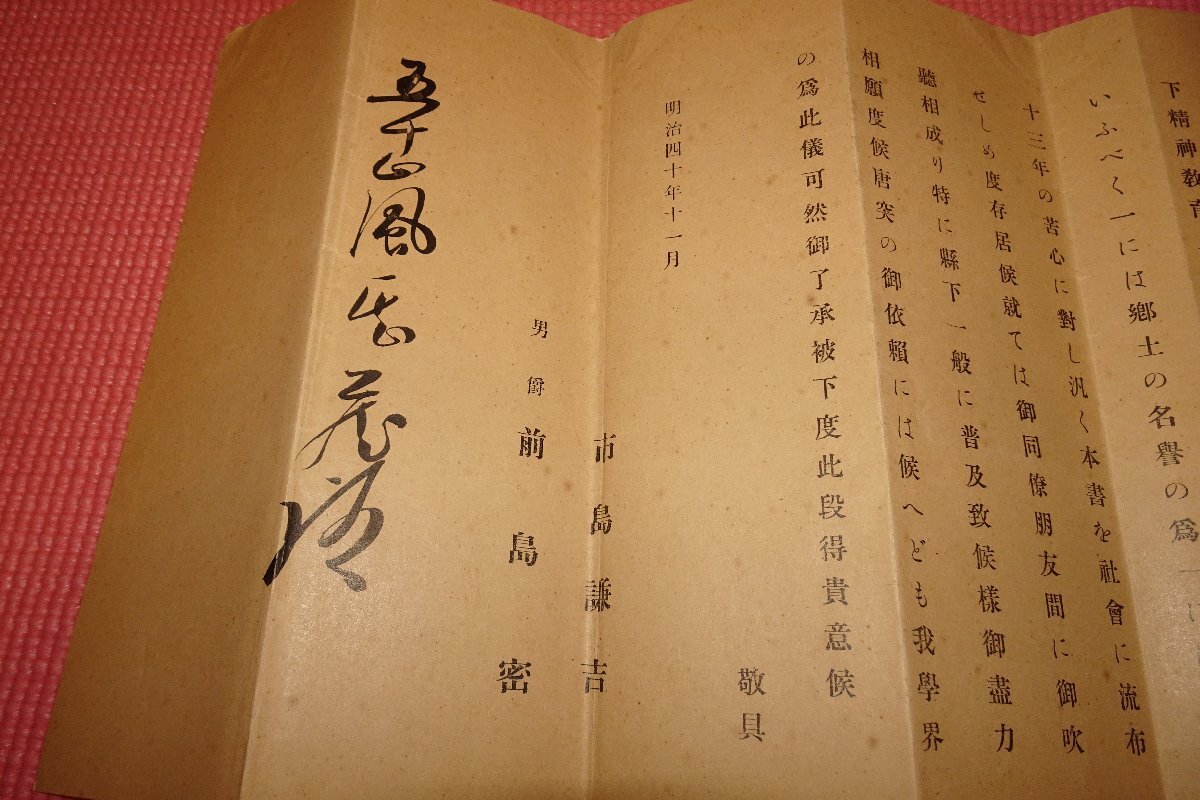 下精神教育
いふべく一には郷土の名譽の爲一に
十三年の苦心に對し汎く本書を社會に流布
せしめ度存居候就ては御同僚朋友間に御吹
聽相成り特に縣下一般に普及致候樣御盡力
相願度候唐突の御依賴には候へども我學界
の爲此儀可然御了承被下度此段得貴意候
敬具
明治四十年十一月
市島謙吉
男爵 前島密
五十嵐